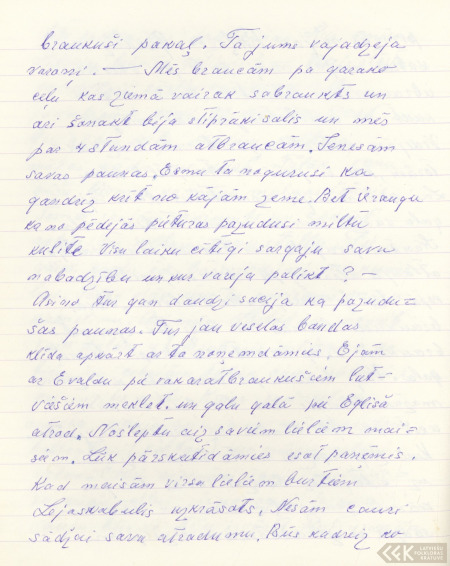 braukuši pakaļ. Ta jums vajadzeja
varoņi. — Mēs braucām pa garako
ceļu kas ziemā vairak sabraukts un
ari šonakt bija stiprāki salis un mēs
par 4 stundām atbraucām. Senesam
savas paunas. Esmu ta nogurusi ka
gandrīz krīt no kājām zeme. Bet ieraugu
ka no pēdejās pūturas pazudusi miltu
kulite Visu laiku cītīgi sargaju savu
nabadzību un kur vareja palikt? —
Asino tur gan daudzi sucija ka pazudu=
šas paunas. Tur jau veselas bandas
klīda apkārt ar to nonemdāmies. Ejam
ar Evaldu pē vakar atbraukušiem lat=
viešiem meklet. un galu galā pē Eglīša
atrod. Noslēptu aiz saviem lieliem mai=
siem. Lūk pārskatīdāmies esot paņēmis.
Kad maisam virsu lieliem burtiem
Lejaskabulis uzkrāsots. Nesām cauri
sādžai savu atradumu. Būs kadreiz ko
LATVIEŠU FOLKLORAS KRĀTUVE